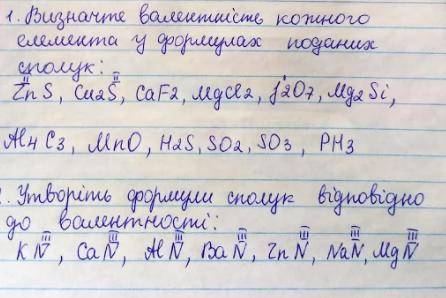 1. Визначте валентність кожного
елемента у формулах поданих
сполук:
II II
ZnS, Cu2S, CaF2, MgCl2, J2O7, Mg2Si,
Al4C3, MnO, H2S, SO2, SO3, PH3
. Утворіть формули сполук відповідно
до валентності:
III III III III III III III
KN, CaN, AlN, BaN, ZnN, NaN, MgN